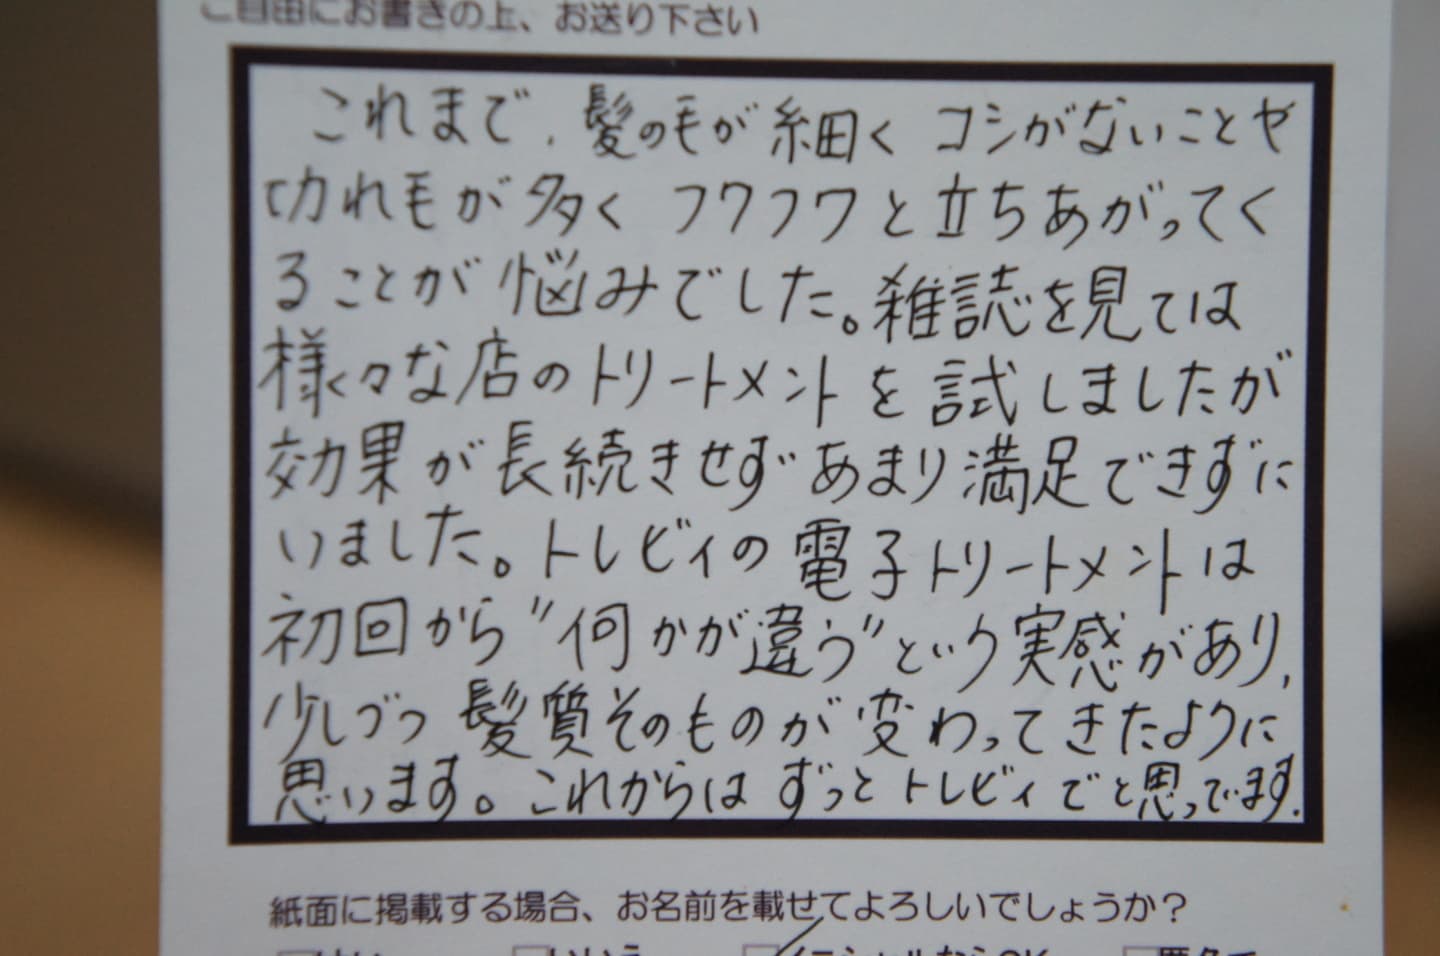 ご自由にお書きの上、お送り下さい
これまで、髪の毛が細く コシがないことや
切れ毛が多く フワフワと立ちあがってく
ることが悩みでした。雑誌を見ては
様々な店のトリートメントを試しましたが
効果が長続きせず あまり満足できずに
いました。トレビィの電子トリートメントは
初回から"何かが違う"という実感があり、
少しづつ 髪質そのものが変わってきたように
思います。これからは ずっとトレビィでと思ってます.
紙面に掲載する場合、お名前を載せてよろしいでしょうか？
はい いいえ イニシャルならOK 匿名で